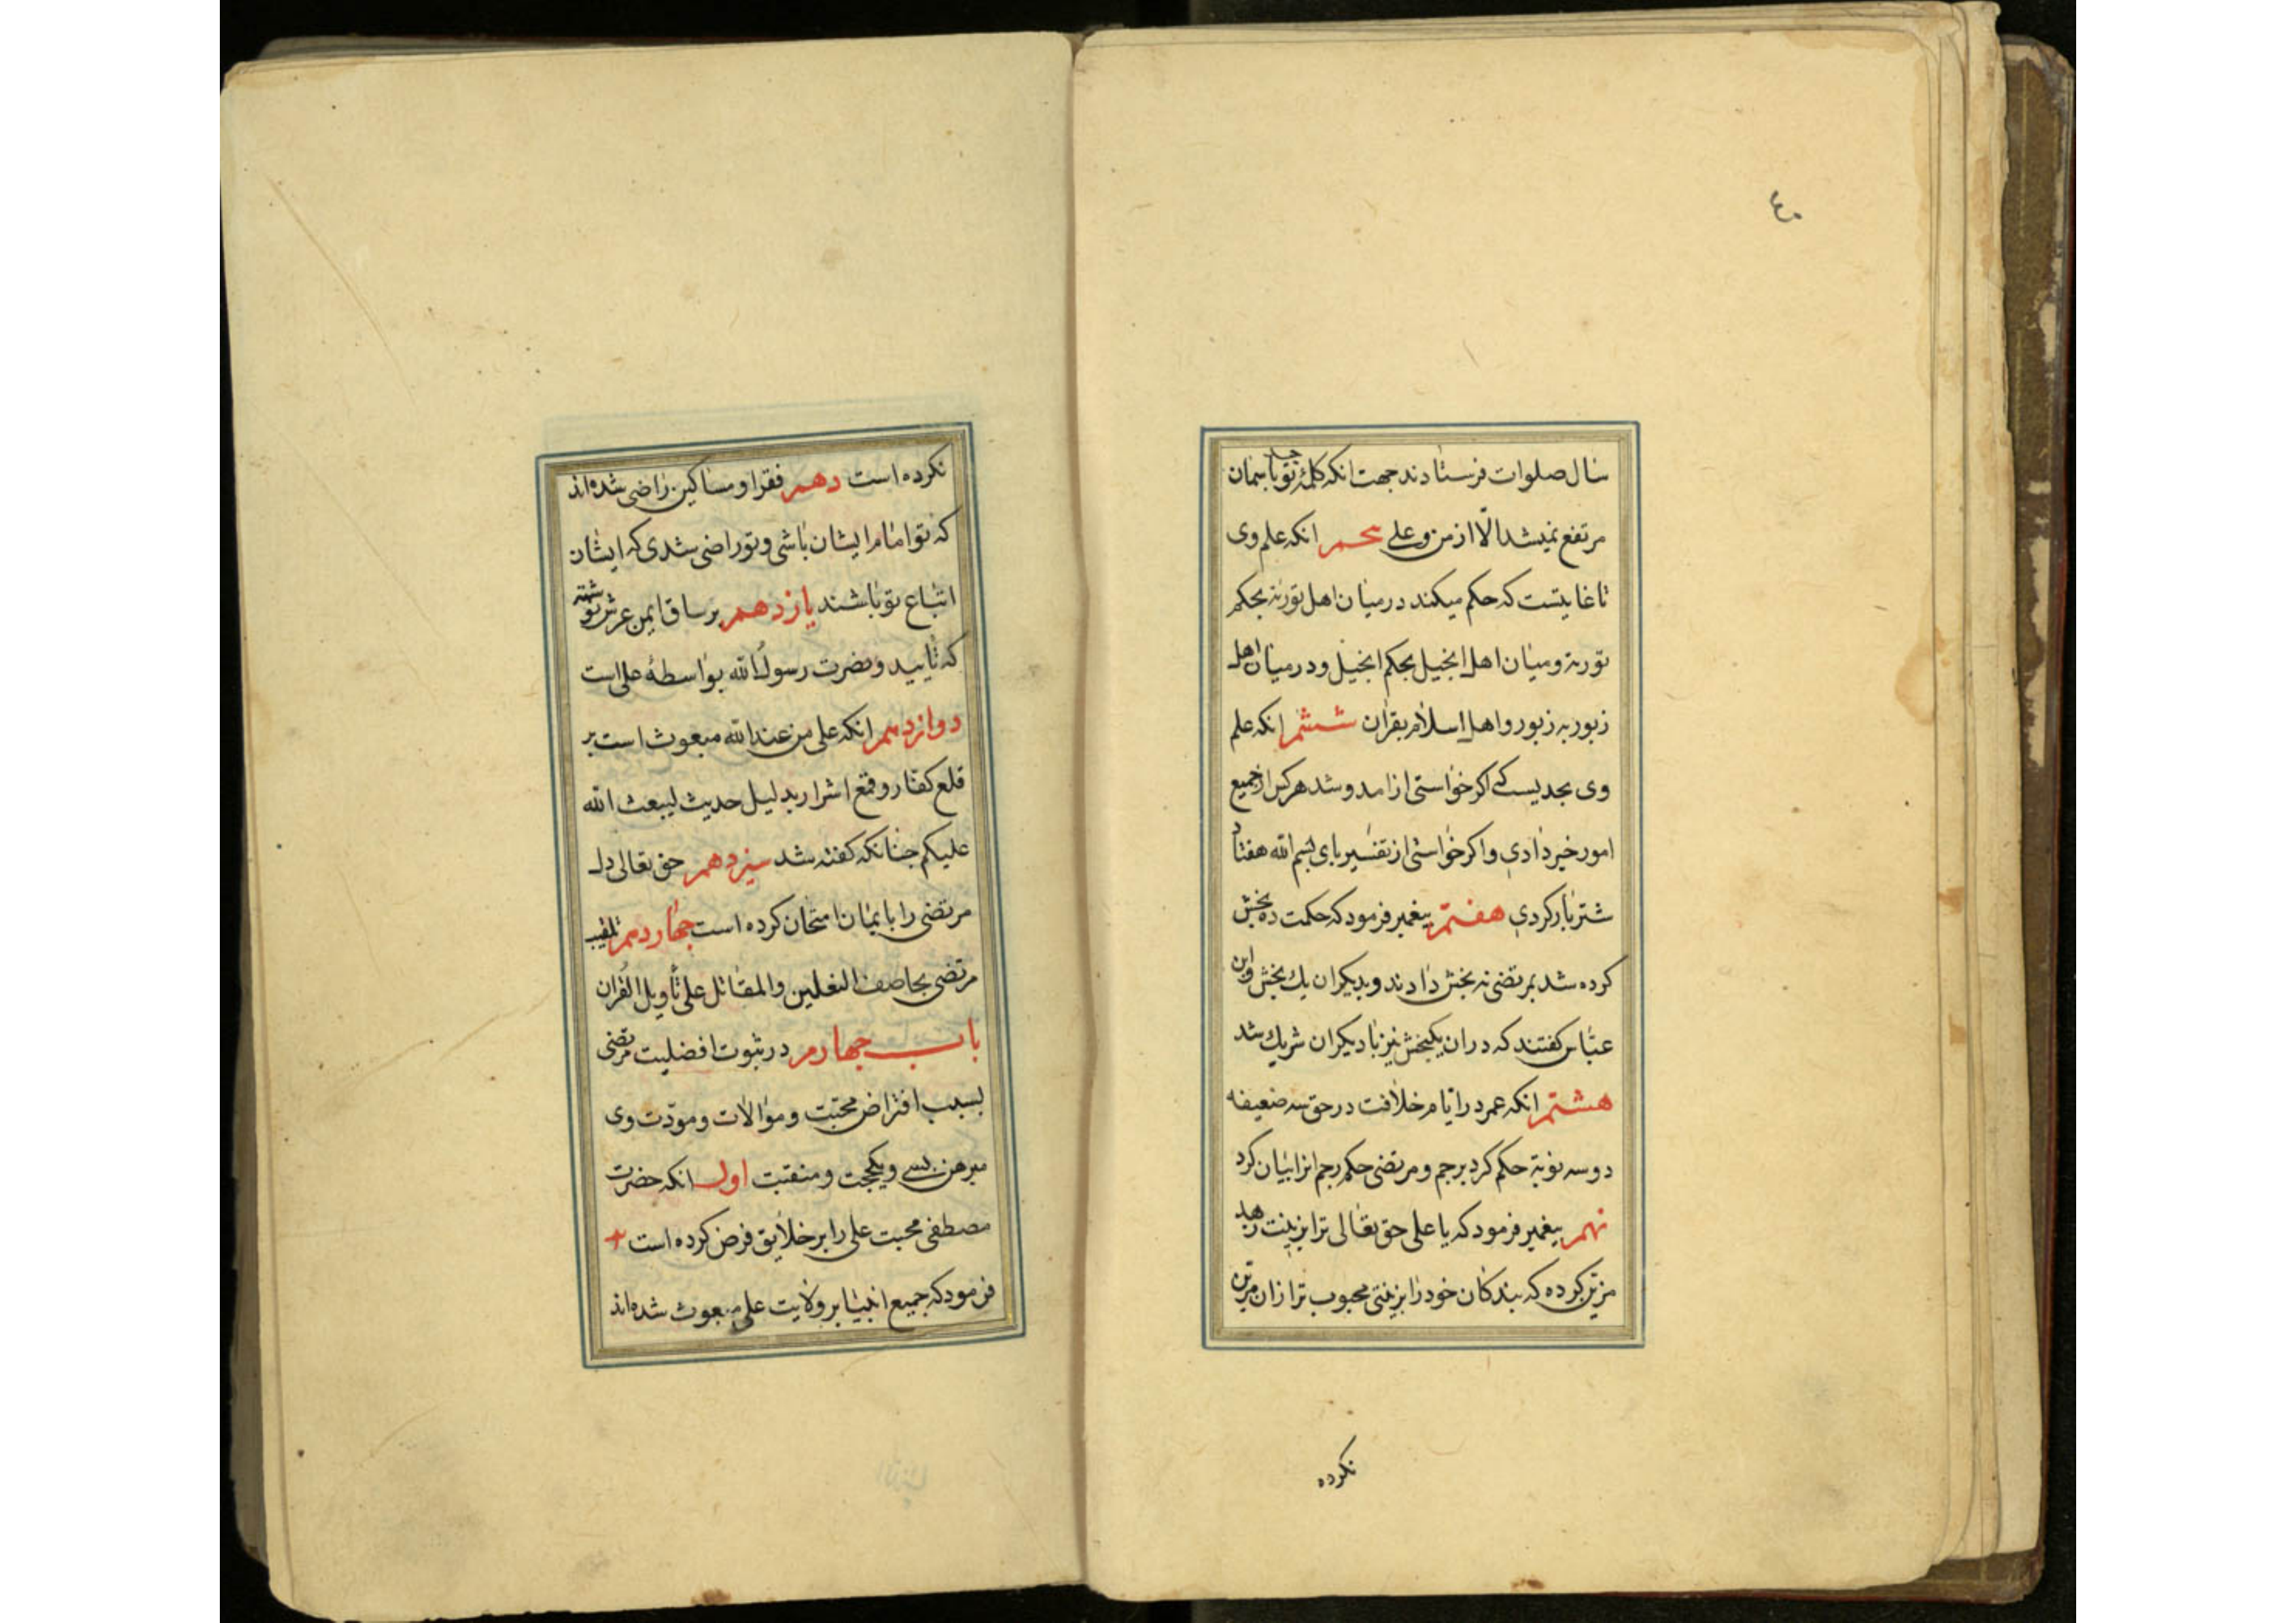 ٤٠
سال صلوات فرستادند جهت انکه کلمهٔ توحید باسمان
مرتفع نمیشد الّا از من و علی پنجم انکه علم وی
تا غایتست که حکم میکند در میان اهل توریة بحکم
توریة و میان اهل انجیل بحکم انجیل و در میان اهل
زبور به زبور و اهل اسلام بقران ششم انکه علم
وی بحدیست که اکر خواستی از امد و شد هرکس از جمیع
امور خبر دادی و اکر خواستی از تفسیر بای بسم الله هفتاد
شتر بار کردی هفتم پیغمبر فرمود که حکمت ده بخش
کرده شد بمرتضی نه بخش دادند و بدیکران یك بخش و ابن
عبّاس کفتند که در ان یکبخش نیز با دیکران شریك شد
هشتم انکه عمر در ایّام خلافت در حق سه ضعیفه
دو سه نوبة حکم کرد برجم و مرتضی حکم رجم انرا بیان کرد
نهم پیغمبر فرمود که یا علی حق تعالی ترا بزینت زهد
مزیّن کرده که بندکان خود را بزینتی محبوب تر از ان مزیّن
نکرده
نکرده است دهم فقرا و مساکین راضی شده اند
که تو امام ایشان باشی و تو راضی شدی که ایشان
اتباع تو باشند یازدهم بر ساق ایمن عرش نوشته
که تأیید و نصرت رسول الله بواسطهٔ علی است
دوازدهم انکه علی من عند الله مبعوث است بر
قلع کفار و قمع اشرار بدلیل حدیث لیبعث الله
علیکم چنانکه کفته شد سیزدهم حق تعالی دل
مرتضی را بایمان امتحان کرده است چهاردهم تلقیب
مرتضی بخاصف النعلین و المقاتل علی تأویل القران
باب چهارم در ثبوت افضلیت مرتضی
بسبب افتراض محبّت و موالات و مودّت وی
مبرهن بسی و یکحجت و منقبت اول انکه حضرت
مصطفی محبت علی را بر خلایق فرض کرده است
فرمود که جمیع انبیا بر ولایت علی مبعوث شده اند